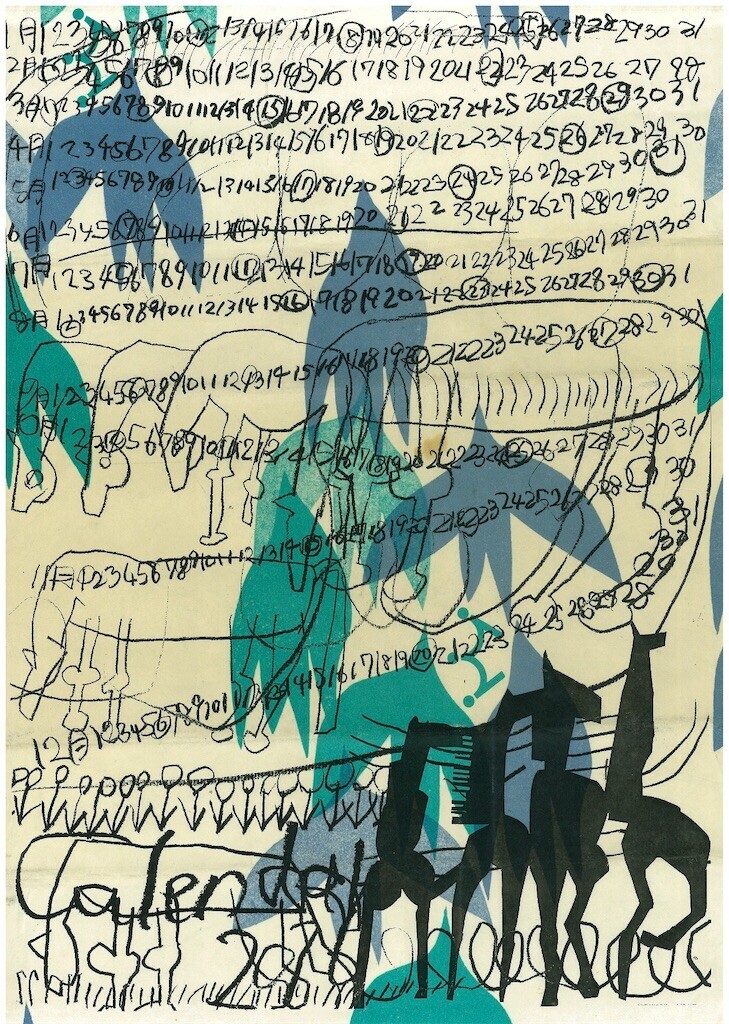 1月 1 2 3 4 5 6 7 8 9 10 11 12 13 14 15 16 17 18 19 20 21 22 23 24 25 26 27 28 29 30 31
2月 1 2 3 4 5 6 7 8 9 10 11 12 13 14 15 16 17 18 19 20 21 22 23 24 25 26 27 28
3月 1 2 3 4 5 6 7 8 9 10 11 12 13 14 15 16 17 18 19 20 21 22 23 24 25 26 27 28 29 30 31
4月 1 2 3 4 5 6 7 8 9 10 11 12 13 14 15 16 17 18 19 20 21 22 23 24 25 26 27 28 29 30
5月 1 2 3 4 5 6 7 8 9 10 11 12 13 14 15 16 17 18 19 20 21 22 23 24 25 26 27 28 29 30 31
6月 1 2 3 4 5 6 7 8 9 10 11 12 13 14 15 16 17 18 19 20 21 22 23 24 25 26 27 28 29 30
7月 1 2 3 4 5 6 7 8 9 10 11 12 13 14 15 16 17 18 19 20 21 22 23 24 25 26 27 28 29 30 31
8月 1 2 3 4 5 6 7 8 9 10 11 12 13 14 15 16 17 18 19 20 21 22 23 24 25 26 27 28 29 30 31
9月 1 2 3 4 5 6 7 8 9 10 11 12 13 14 15 16 17 18 19 20 21 22 23 24 25 26 27 28 29 30
10月 1 2 3 4 5 6 7 8 9 10 11 12 13 14 15 16 17 18 19 20 21 22 23 24 25 26 27 28 29 30 31
11月 1 2 3 4 5 6 7 8 9 10 11 12 13 14 15 16 17 18 19 20 21 22 23 24 25 26 27 28 29 30
12月 1 2 3 4 5 6 7 8 9 10 11 12 13 14 15 16 17 18 19 20 21 22 23 24 25 26 27 28 29 30 31
Calendar
2015